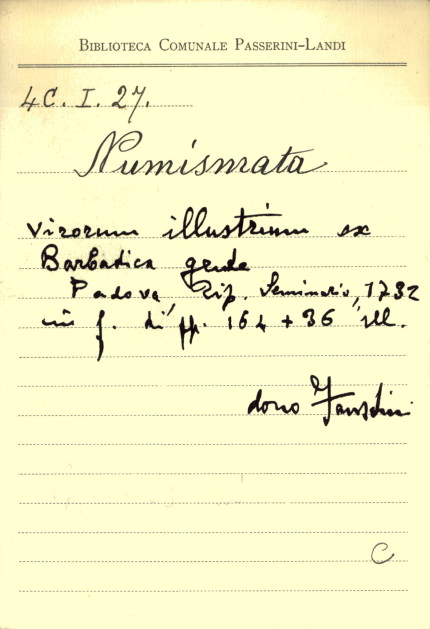 BIBLIOTECA COMUNALE PASSERINI-LANDI
4C. I. 27.
Numismata
virorum illustrium ex
Barbadica gente
Padova, Tip. Seminario, 1732
in f. di pp. 164 + 36 ill.
dono
C